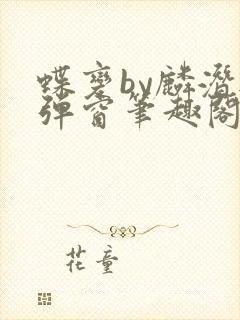 蝶变by麟潜无
弹窗笔趣阁
花童